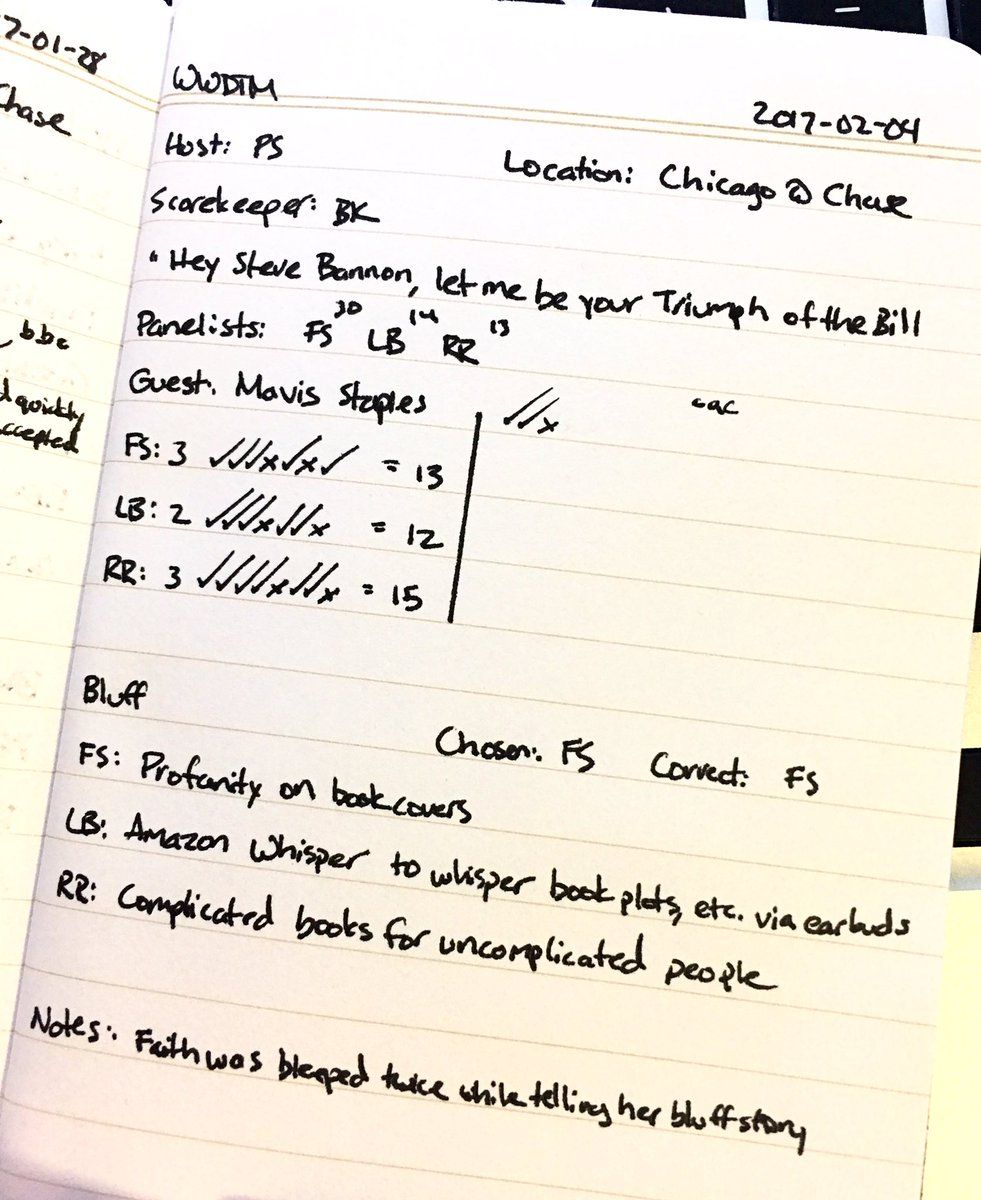 7-01-28
Chase
bbc
d quickly
ccepted
WWDTM
2017-02-04
Host: PS
Location: Chicago @ Chase
Scorekeeper: BK
"Hey Steve Bannon, let me be your Triumph of the Bill
Panelists: FS 30 LB 14 RR 13
Guest: Mavis Staples
✓✓x
FS: 3 ✓✓✓x✓x✓ = 13
LB: 2 ✓✓✓x✓✓x = 12
RR: 3 ✓✓✓✓x✓✓x = 15
Bluff
Chosen: FS Correct: FS
FS: Profanity on book covers
LB: Amazon Whisper to whisper book plots, etc. via earbuds
RR: Complicated books for uncomplicated people
Notes: Faith was bleeped twice while telling her bluff story